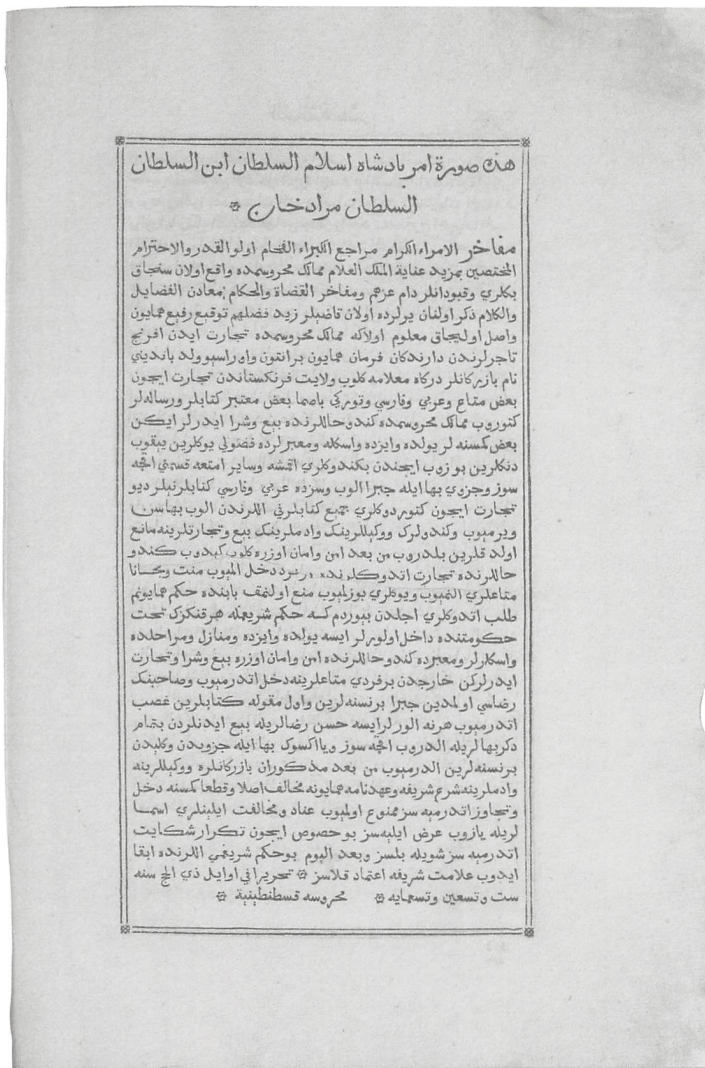 هذه صورة امر بادشاه اسلام السلطان ابن السلطان
السلطان مراد خان
مفاخر الامراء الكرام مراجع الكبراء الفخام اولو القدر والاحترام
المختصين بمزيد عناية الملك العلام ممالك محروسمده واقع اولان سنجاق
بكلري وقبودانلر دام عزهم ومفاخر القضاة والحكام معادن الفضايل
والكلام ذكر اولنان يرلرده اولان قاضيلر زيد فضلهم توقيع رفيع همايون
واصل اوليجاق معلوم اولاكه ممالك محروسمده تجارت ايدن افرنج
تاجرلرندن دارندكان فرمان همايون برانتون واوراسيو ولد بانديني
نام بازركانلر دركاه معلامه كلوب ولايت فرنكستاندن تجارت ايجون
بعض متاع وعربي وفارسي وتوركي باصما بعض معتبر كتابلر ورساله لر
كتوروب ممالك محروسمده كندو حاللرنده بيع وشرا ايدرلر ايكن
بعض كمسنه لر يولده وايزده واسكله ومعبرلرده فضولي يوكلرين ييقوب
دنكلرين بوزوب ايجندن بكندوكلري اقمشه وساير امتعه قسمني اقچه
سوز وجزوي بها ايله جبرا الوب وسزده عربي وفارسي كتابلر نيلر ديو
تجارت ايجون كتوردوكلري جميع كتابلرني اللرندن الوب بهاسن
ويرميوب وكندولرك ووكيللرينك وادملرينك بيع وتجارتلرينه مانع
اولدقلرين بلدروب من بعد امن وامان اوزره كلوب كيدوب كندو
حاللرنده تجارت اتدوكلرنده دخل المیوب منت ومجانا
متاعلري المیوب ويوكلري بوزلميوب منع اولنمق بابنده حكم همايونم
طلب اتدوكلري اجلدن بيوردم كه حكم شريفمله هر قنكزك تحت
حكومتنده داخل اولورلر ايسه يولده وايزده ومنازل ومراحلده
واسكلرلر ومعبرده كندو حاللرنده امن وامان اوزره بيع وشرا وتجارت
ايدرلركن خارجدن بر فردي متاعلرينه دخل اتدرميوب وصاحبنك
رضاسي اولمدين جبرا برنسنه لرين واول مقوله كتابلرين غصب
اتدرميوب هر نه الورلر ايسه حسن رضالريله بيع ايدنلردن بتمام
دكر بهالريله الدروب اقچه سوز ويا اكسوك بها ايله جزويدن وكليدن
برنسنه لرين الدرميوب من بعد مذكوران بازركانلره ووكيللرينه
وادملرينه شرع شريفه وعهدنامه همايونه مخالف اصلا وقطعا كمسنه دخل
وتجاوز اتدرميه سز ممنوع اولميوب عناد ومخالفت ايلينلري اسما
لريله يازوب عرض ايليه سز بو خصوص ايجون تكرار شكايت
اتدرميه سز شويله بلسز وبعد اليوم بو حكم شريفمي اللرنده ابقا
ايدوب علامت شريفه اعتماد قلاسز تحريرا في اوايل ذي الحج سنه
ست وتسعين وتسعمايه محروسه قسطنطينية